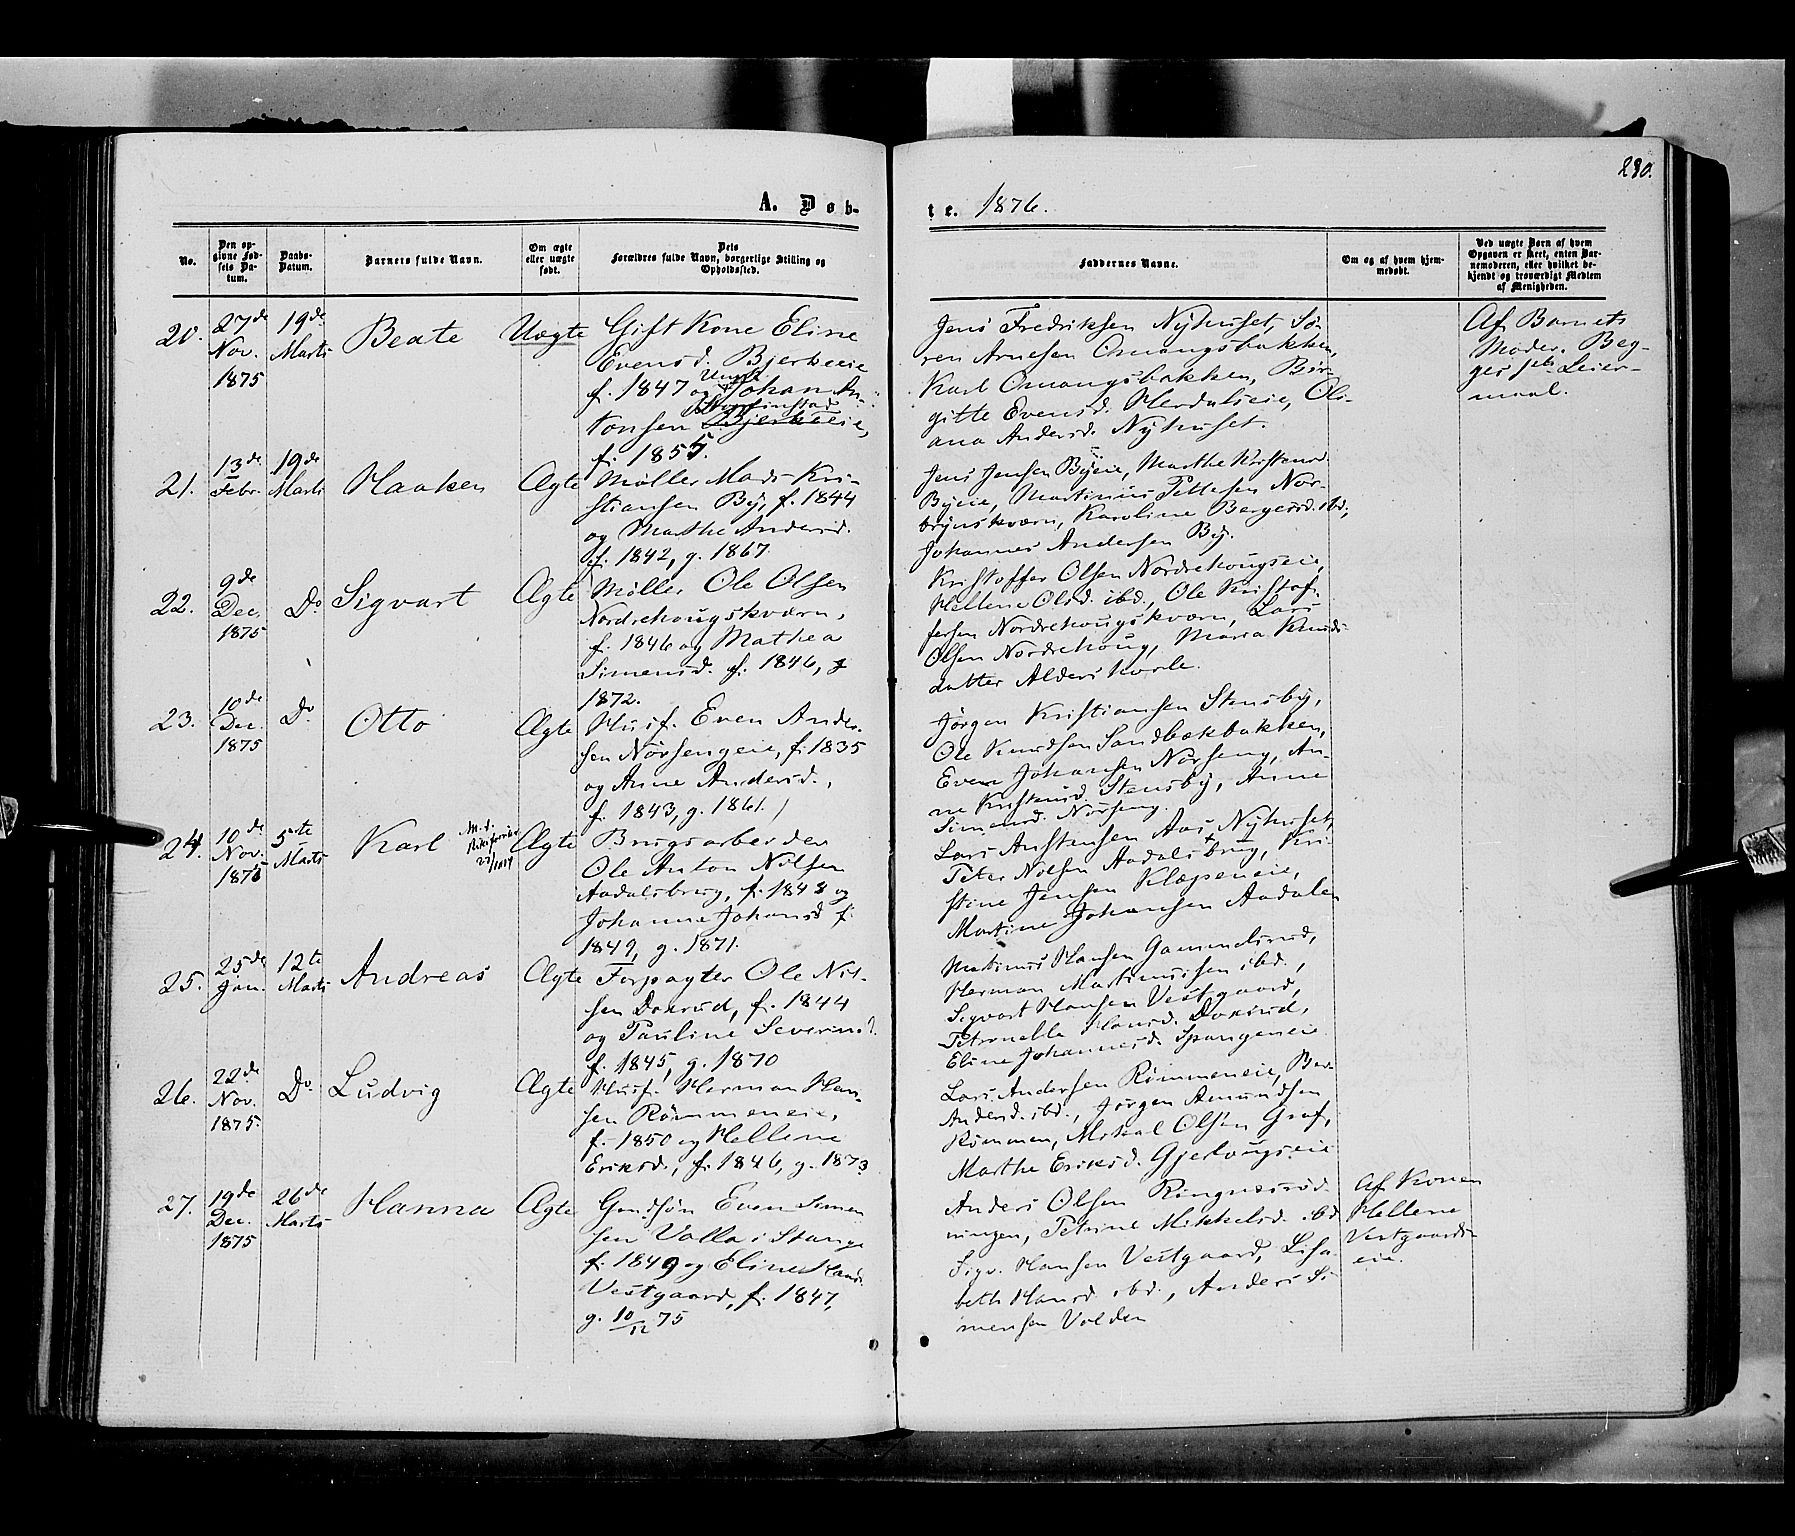 280.
A. Døb-
te. 1876.
No.
Den op-
givne Fød-
sels Da-
tum.
Daabs-
Datum.
Barnets fulde Navn.
Om ægte
eller uægte
født.
Dets
Forældres fulde Navn, borgerlige Stilling og
Opholdssted.
Faddernes Navne.
Om og af hvem hjem-
medøbt.
Ved uægte Børn af hvem
Opgaven er skeet, enten Bar-
nemoderen, eller hvilket be-
kjendt og troværdigt Medlem
af Menigheden.
20.
27de
Nov.
1875
19de
Marts
Beate
Uægte
Gift Kone Eline
Evensd. Bjerkeeie
f. 1847 og Ungk. Johan An-
tonsen Bjerkeeie,
f. 1855.
Jens Fredriksen Nyhuset, Sø-
ren Arnesen Omangsbakken,
Karl Omangsbakken, Bir-
gitte Evensd. Herdalseie, Oli-
ana Andersd. Nyhuset.
Af Barnets
Moder. Beg-
ges Leier-
maal.
21.
13de
Febr.
19de
Marts
Haaken
Ægte
Møller Mads Kri-
stiansen By, f. 1844
og Marthe Andersd.
f. 1842, g. 1867.
Jens Jensen Byeie, Marthe Kristensd.
Byeie, Martinus Pettersen Nor-
brynskværn, Karoline Bergersd. ibd.,
Johannes Andersen By.
22.
9de
Dec.
1875
Do
Sigvart
Ægte
Møller Ole Olsen
Nordrehougskværn,
f. 1846 og Mathea
Simensd. f. 1846, g
1872.
Kristoffer Olsen Nordrehougseie,
Hellene Olsd. ibd., Ole Kristof-
fersen Nordrehougskværn, Lars
Olsen Nordrehoug, Maria Knuds-
datter Alderskorle.
23.
10de
Dec.
1875
Do
Otto
Ægte
Husf. Even Ander-
sen Nørsengeie, f. 1835
og Anne Andersd.,
f. 1843, g. 1861.
Jørgen Kristiansen Stensby,
Ole Knudsen Sandbækbakken,
Even Johansen Nørseng, An-
ne Kristensd. Stensby, Anne
Simensd. Nørseng.
24.
10de
Nov.
1875
5te
Marts
Karl
Ægte
Brugsarbeider
Ole Anton Nilsen
Aadalsbrug, f. 1848 og
Johanne Johansd f.
1849, g. 1871.
Lars Austensen Aas Nyhuset,
Peter Nilsen Aadalsbrug, Kri-
stine Jensen Klæpeneie,
Martine Johansen Aadalen
25.
25de
Jan.
12te
Marts
Andreas
Ægte
Forpagter Ole Nil-
sen Dokrud, f. 1844
og Pauline Severinsd.
f. 1845, g. 1870
Matinus Hansen Gammelsrud,
Herman Martinussen ibd.,
Sigvart Hansen Vestgaard,
Petronelle Hansd. Dokrud,
Eline Johannesd. Spangeneie
26.
22de
Nov.
1875.
Do
Ludvig
Ægte
Husf. Herman Han-
sen Rømmeneie,
f. 1850 og Hellene
Eriksd., f. 1846, g. 1873
Lars Andersen Rømmeneie, Ber.
Andersd. ibd., Jørgen Amundsen
Rømmen, Mikael Olsen Graf,
Marthe Eriksd. Gjerlougseie
27.
19de
Dec.
1875
26de
Marts
Hanna
Ægte
Gaudsøn Even Simen
sen Valla i Stange
f. 1849 og Eline Hansd.
Vestgaard, f. 1847,
g. 10/12 75
Anders Olsen Ringnesrød-
ningen, Petrine Mikkelsd. ibd
Sigv. Hansen Vestgaard, Lisa-
beth Hansd ibd., Anders Si-
mensen Volden
Af Konen
Hellene
Vestgaards-
eie.